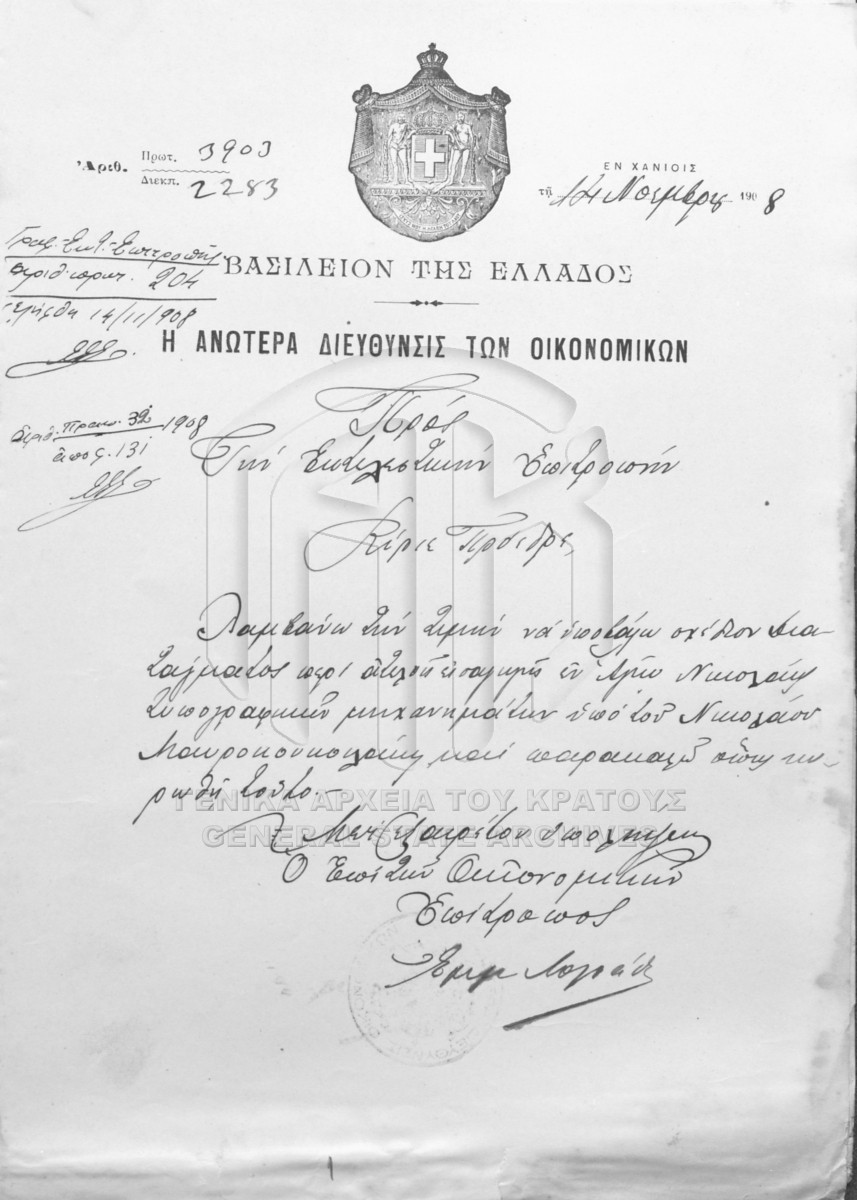 Ἀριθ. Πρωτ. 3903
Διεκπ. 2283
ΕΝ ΧΑΝΙΟΙΣ
τῇ 14 Νοεμβρίου 1908
Γραφ. Ἐκτ. Ἐπιτροπῆς
ἀριθ. πρωτ. 204
ἐλήφθη 14/11/908
ΒΑΣΙΛΕΙΟΝ ΤΗΣ ΕΛΛΑΔΟΣ
Η ΑΝΩΤΕΡΑ ΔΙΕΥΘΥΝΣΙΣ ΤΩΝ ΟΙΚΟΝΟΜΙΚΩΝ
ἀριθ. Πρακ. 32 1908
ἀπος. 131
Πρός
Τὴν Ἐκτελεστικὴν Ἐπιτροπήν
Κύριε Πρόεδρε,
Λαμβάνω τὴν τιμὴν νὰ ὑποβάλω σχέδιον δια-
τάγματος περὶ ἀτελοῦς εἰσαγωγῆς ἐν Ἁγίῳ Νικολάῳ
τυπογραφικῶν μηχανημάτων ὑπὸ τοῦ Νικολάου
καὶ παρακαλῶ ὅπως κυ-
ρωθῇ τοῦτο.-
Μετ' ἐξαιρέτου ὑπολήψεως
Ὁ Ἐπὶ τῶν Οἰκονομικῶν
Ἐπίτροπος
Εμμ
ΓΕΝΙΚΑ ΑΡΧΕΙΑ ΤΟΥ ΚΡΑΤΟΥΣ
GENERAL STATE ARCHIVES